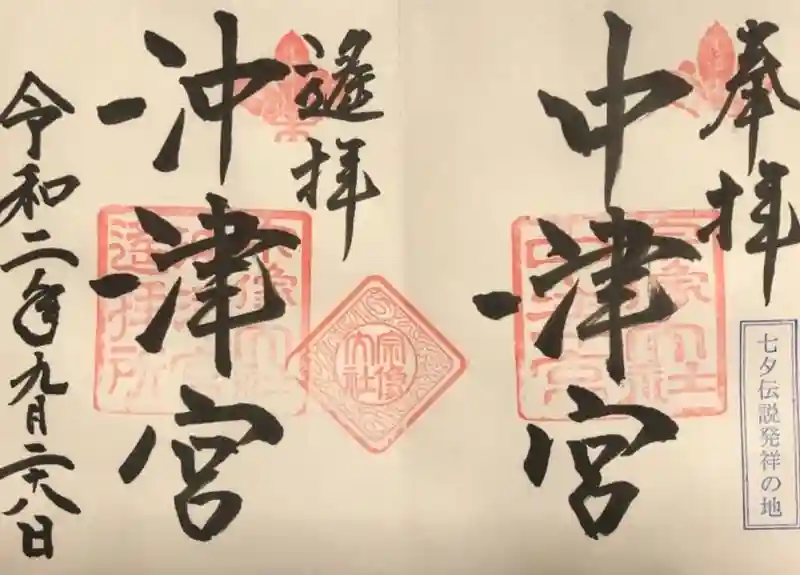 奉拝
七夕伝説発祥の地
中津宮
宗像大社
中津宮
遙拝
宗像
大社
沖津宮
宗像大社
沖津宮
遥拝所
令和二年九月二十八日